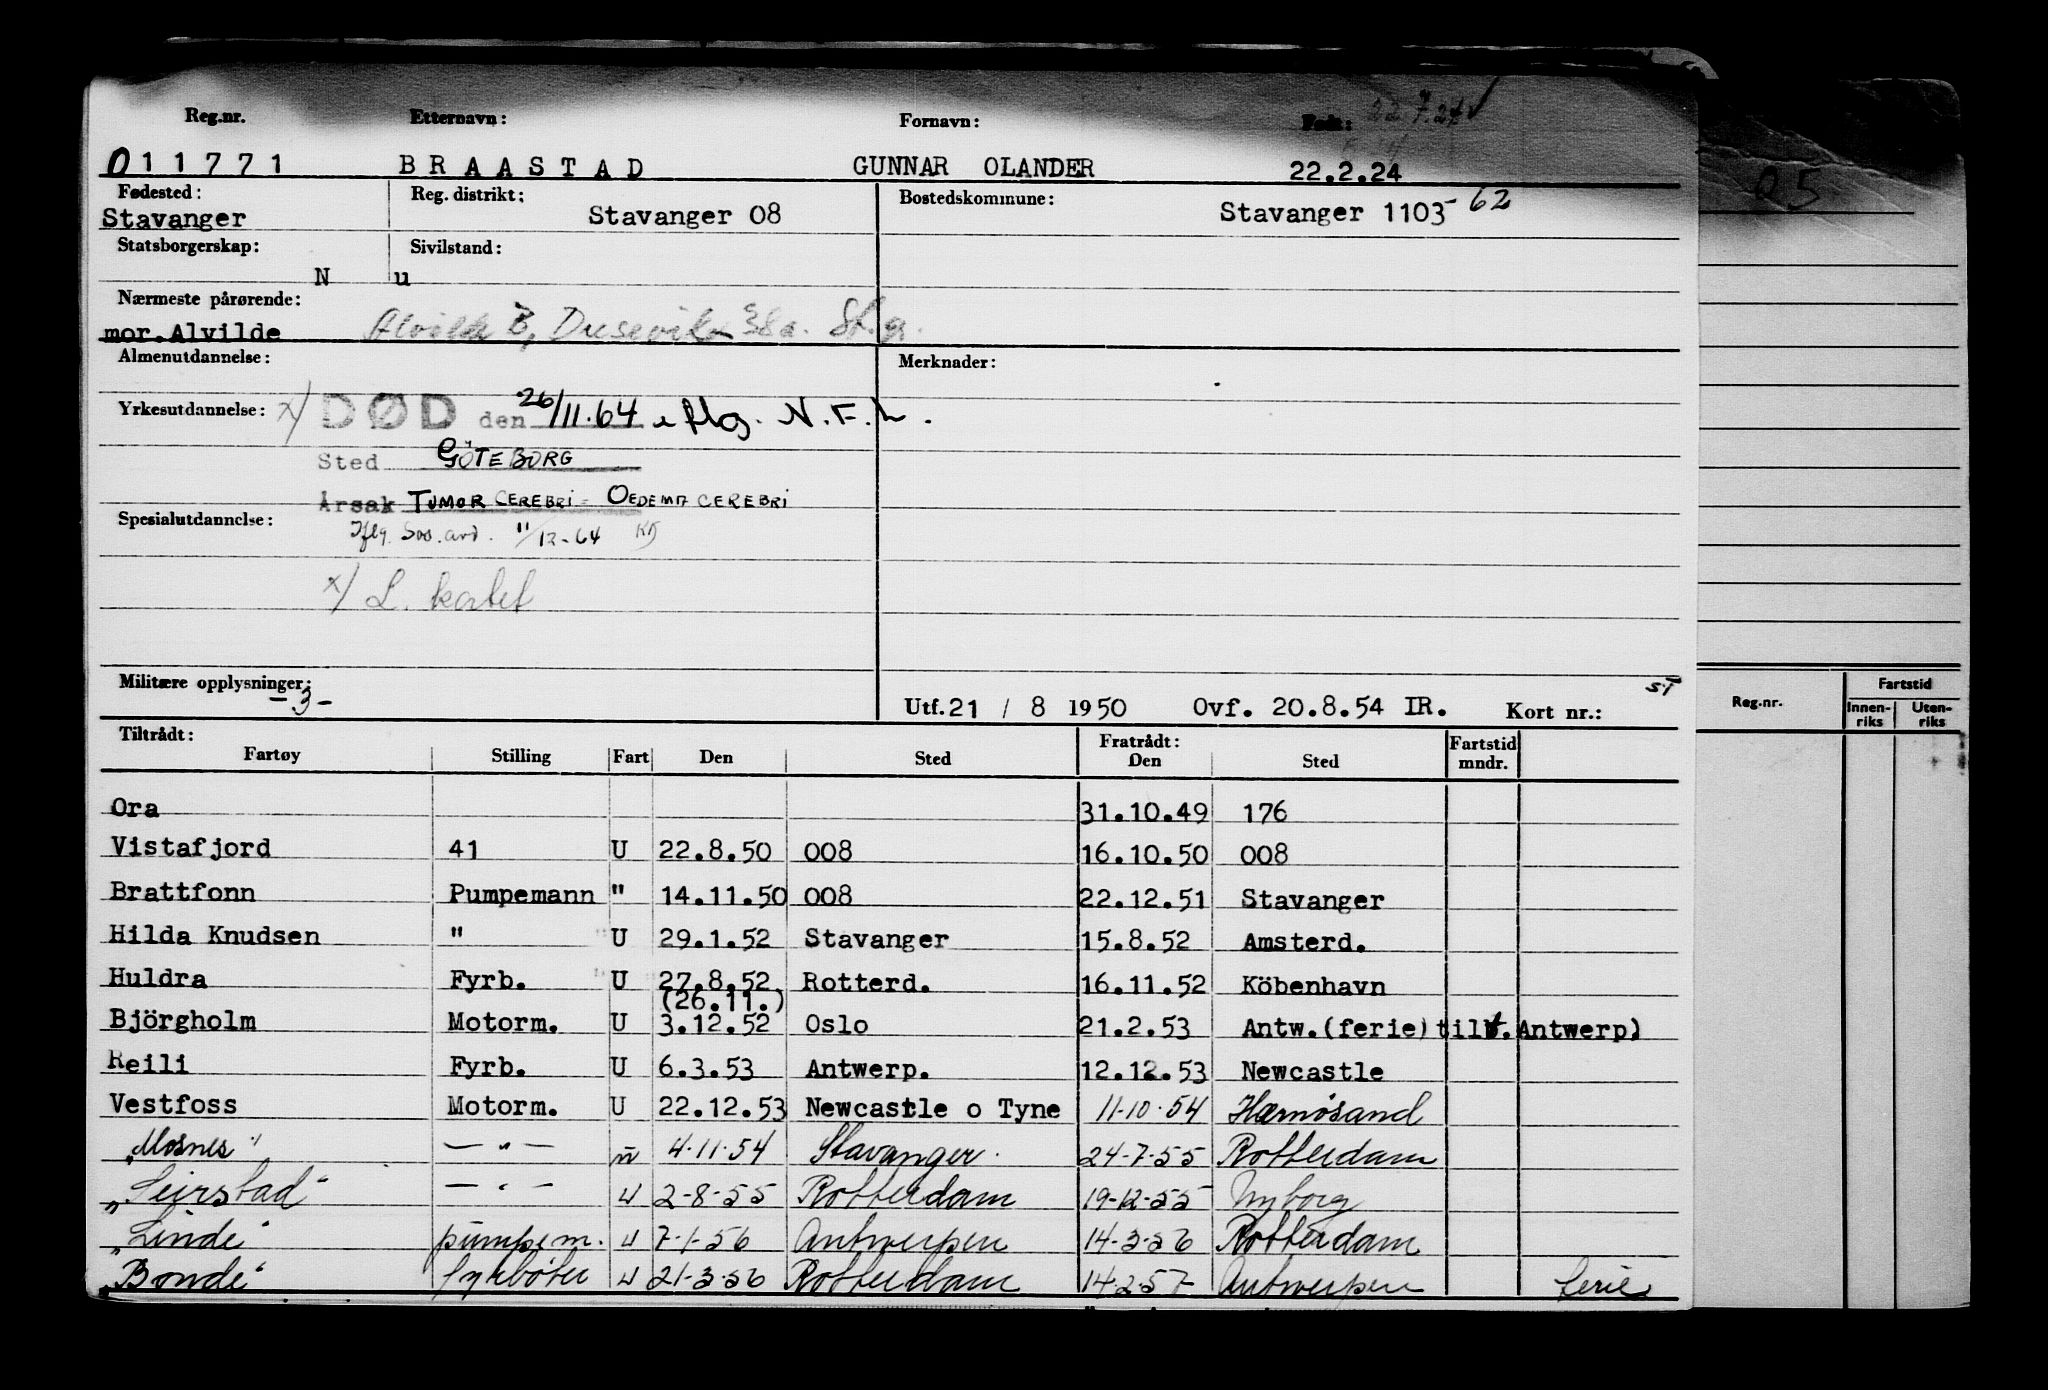 Reg.nr. Etternavn: Fornavn: Født: 22.7.24
011771 BRAASTAD GUNNAR OLANDER 22.2.24
Fødested: Reg. distrikt: Bostedskommune:
Stavanger Stavanger 08 Stavanger 1103 - 62
05
Statsborgerskap: Sivilstand:
N u
Nærmeste pårørende:
mor. Alvilde Alvilde B, Dusevikv 38a. St.g.
Almenutdannelse: Merknader:
Yrkesutdannelse: x/ DØD den 26/11.64 iflg. N.F.L.
Sted GÖTEBORG
Årsak TUMOR CEREBRI - OEDEMA CEREBRI
Spesialutdannelse:
Iflg. Sos.avd. 11/12-64
x/ L. kortet
Militære opplysninger:
-3-
ST
Utf. 21 / 8 1950 Ovf. 20.8.54 IR. Kort nr.:
Reg.nr. Fartstid
Innen-riks Uten-riks
Tiltrådt: Fratrådt:
Fartøy Stilling Fart Den Sted Den Sted Fartstid mndr.
Ora 31.10.49 176
Vistafjord 41 U 22.8.50 008 16.10.50 008
Brattfonn Pumpemann " 14.11.50 008 22.12.51 Stavanger
Hilda Knudsen " U 29.1.52 Stavanger 15.8.52 Amsterd.
Huldra Fyrb. U 27.8.52 Rotterd. 16.11.52 Köbenhavn
(26.11.)
Björgholm Motorm. U 3.12.52 Oslo 21.2.53 Antw.(ferie) tilt. Antwerp)
Reili Fyrb. U 6.3.53 Antwerp. 12.12.53 Newcastle
Vestfoss Motorm. U 22.12.53 Newcastle o Tyne 11-10-54 Hærnøsand
"Mosnes" — " — u 4-11-54 Stavanger. 24-7-55 Rotterdam
"Seirstad" — " — u 2-8-55 Rotterdam 19-12-55 Nyborg
"Linde" pumpem. u 7-1-56 Antwerpen 14-3-56 Rotterdam
"Bonde" fyrbøter u 21-3-56 Rotterdam 14-2-57 Antwerpen ferie